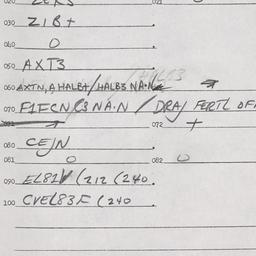 020 021
030 ZIB+
040 0
050 AXT3
060 AXTN, A HALB+/HALB3 NA·N
070 F1FCN B3 NA·N / DRAJ FERTL OF
072 +
080 CEJN
081 0 082 0
090 EL81V (212 (240.
100 CVEL83F (240